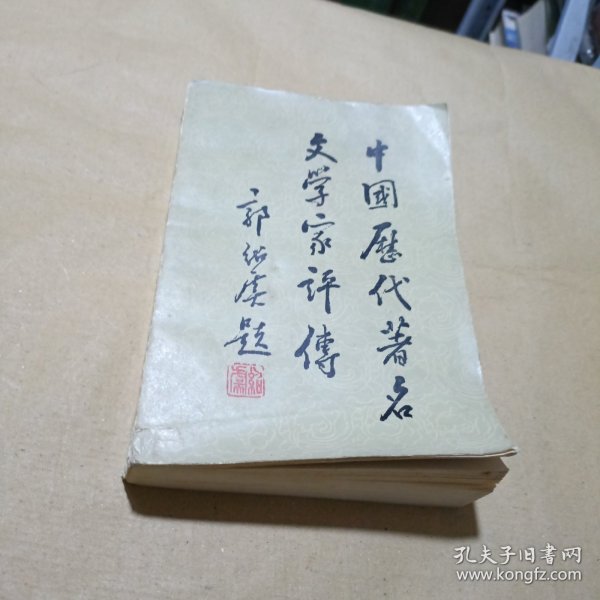 中國歷代著名
文學家評傳
郭紹虞題
孔夫子旧书网
www.kongfz.com